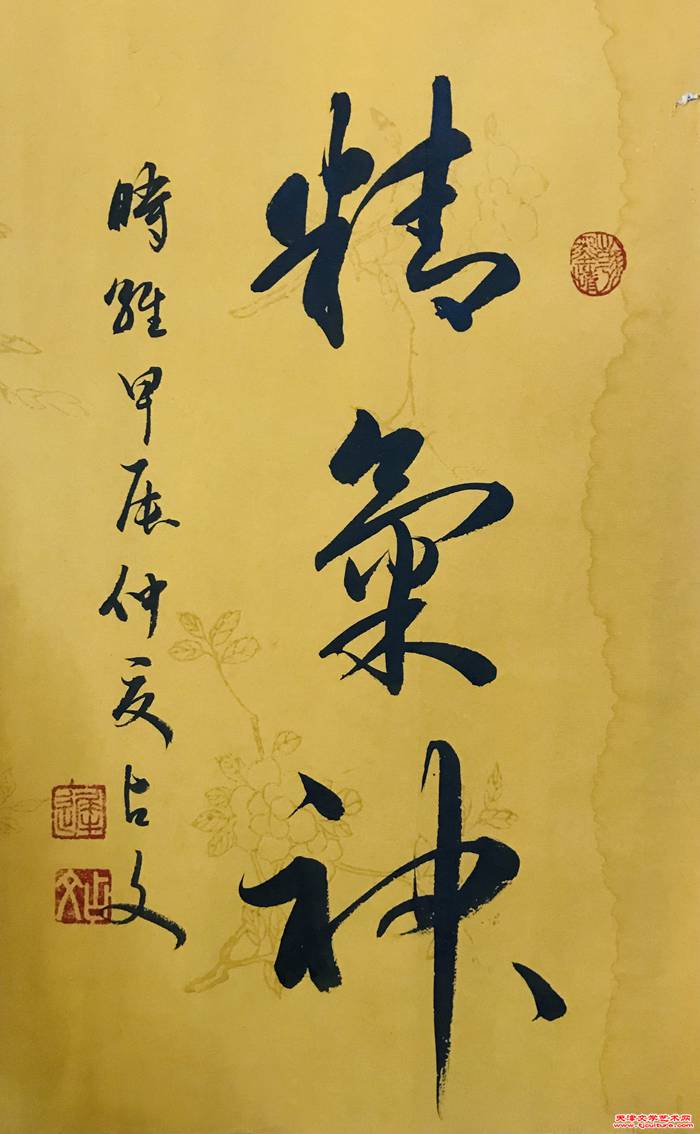 精氣神
時維甲辰仲夏占文
天津文学艺术网
www.tjculture.com